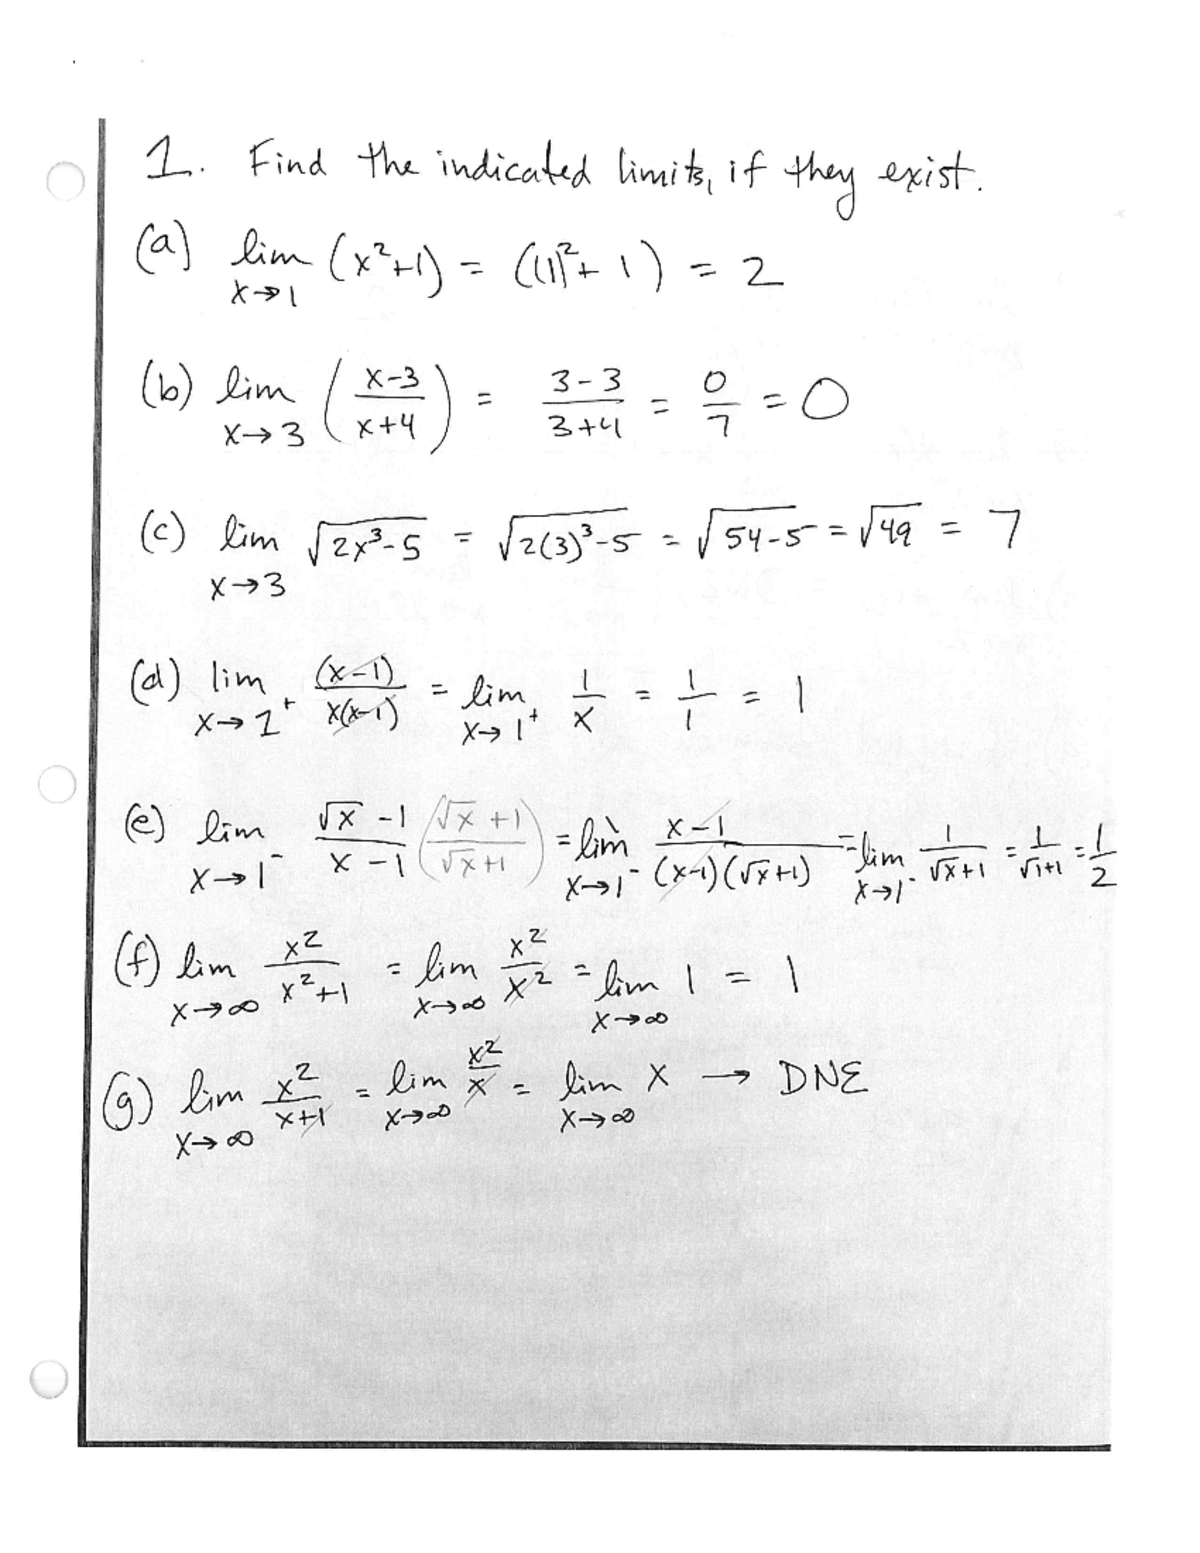 1. Find the indicated limits, if they exist.
(a) lim x→1 (x²+1) = ((1)²+1) = 2
(b) lim x→3 ((x-3)/(x+4)) = (3-3)/(3+4) = 0/7 = 0
(c) lim x→3 √(2x³-5) = √(2(3)³-5) = √(54-5) = √49 = 7
(d) lim x→1⁺ (x-1)/(x(x-1)) = lim x→1⁺ 1/x = 1/1 = 1
(e) lim x→1⁻ (√x -1)/(x-1) ((√x +1)/(√x +1)) = lim x→1⁻ (x-1)/((x-1)(√x+1)) = lim x→1⁻ 1/(√x+1) = 1/(√1+1) = 1/2
(f) lim x→∞ x²/(x²+1) = lim x→∞ x²/x² = lim x→∞ 1 = 1
(g) lim x→∞ x²/(x+1) = lim x→∞ x²/x = lim x→∞ x → DNE